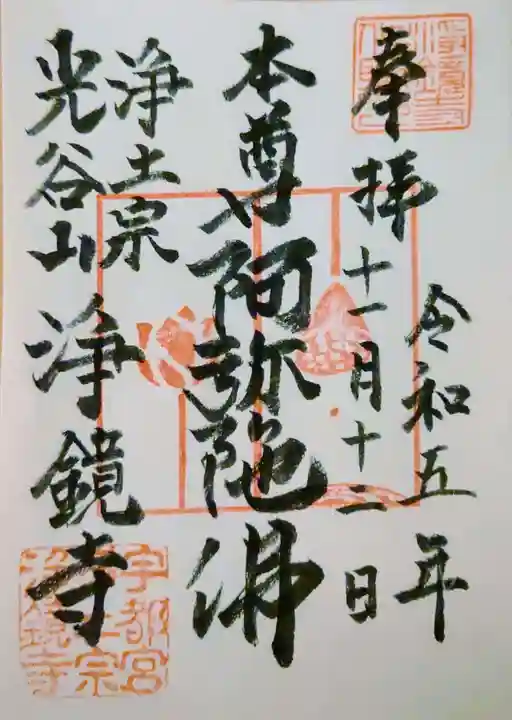 奉拝
令和五年
十一月十二日
本尊阿弥陀佛
浄土宗
光谷山
浄鏡寺
宇都宮
宗
浄鏡寺